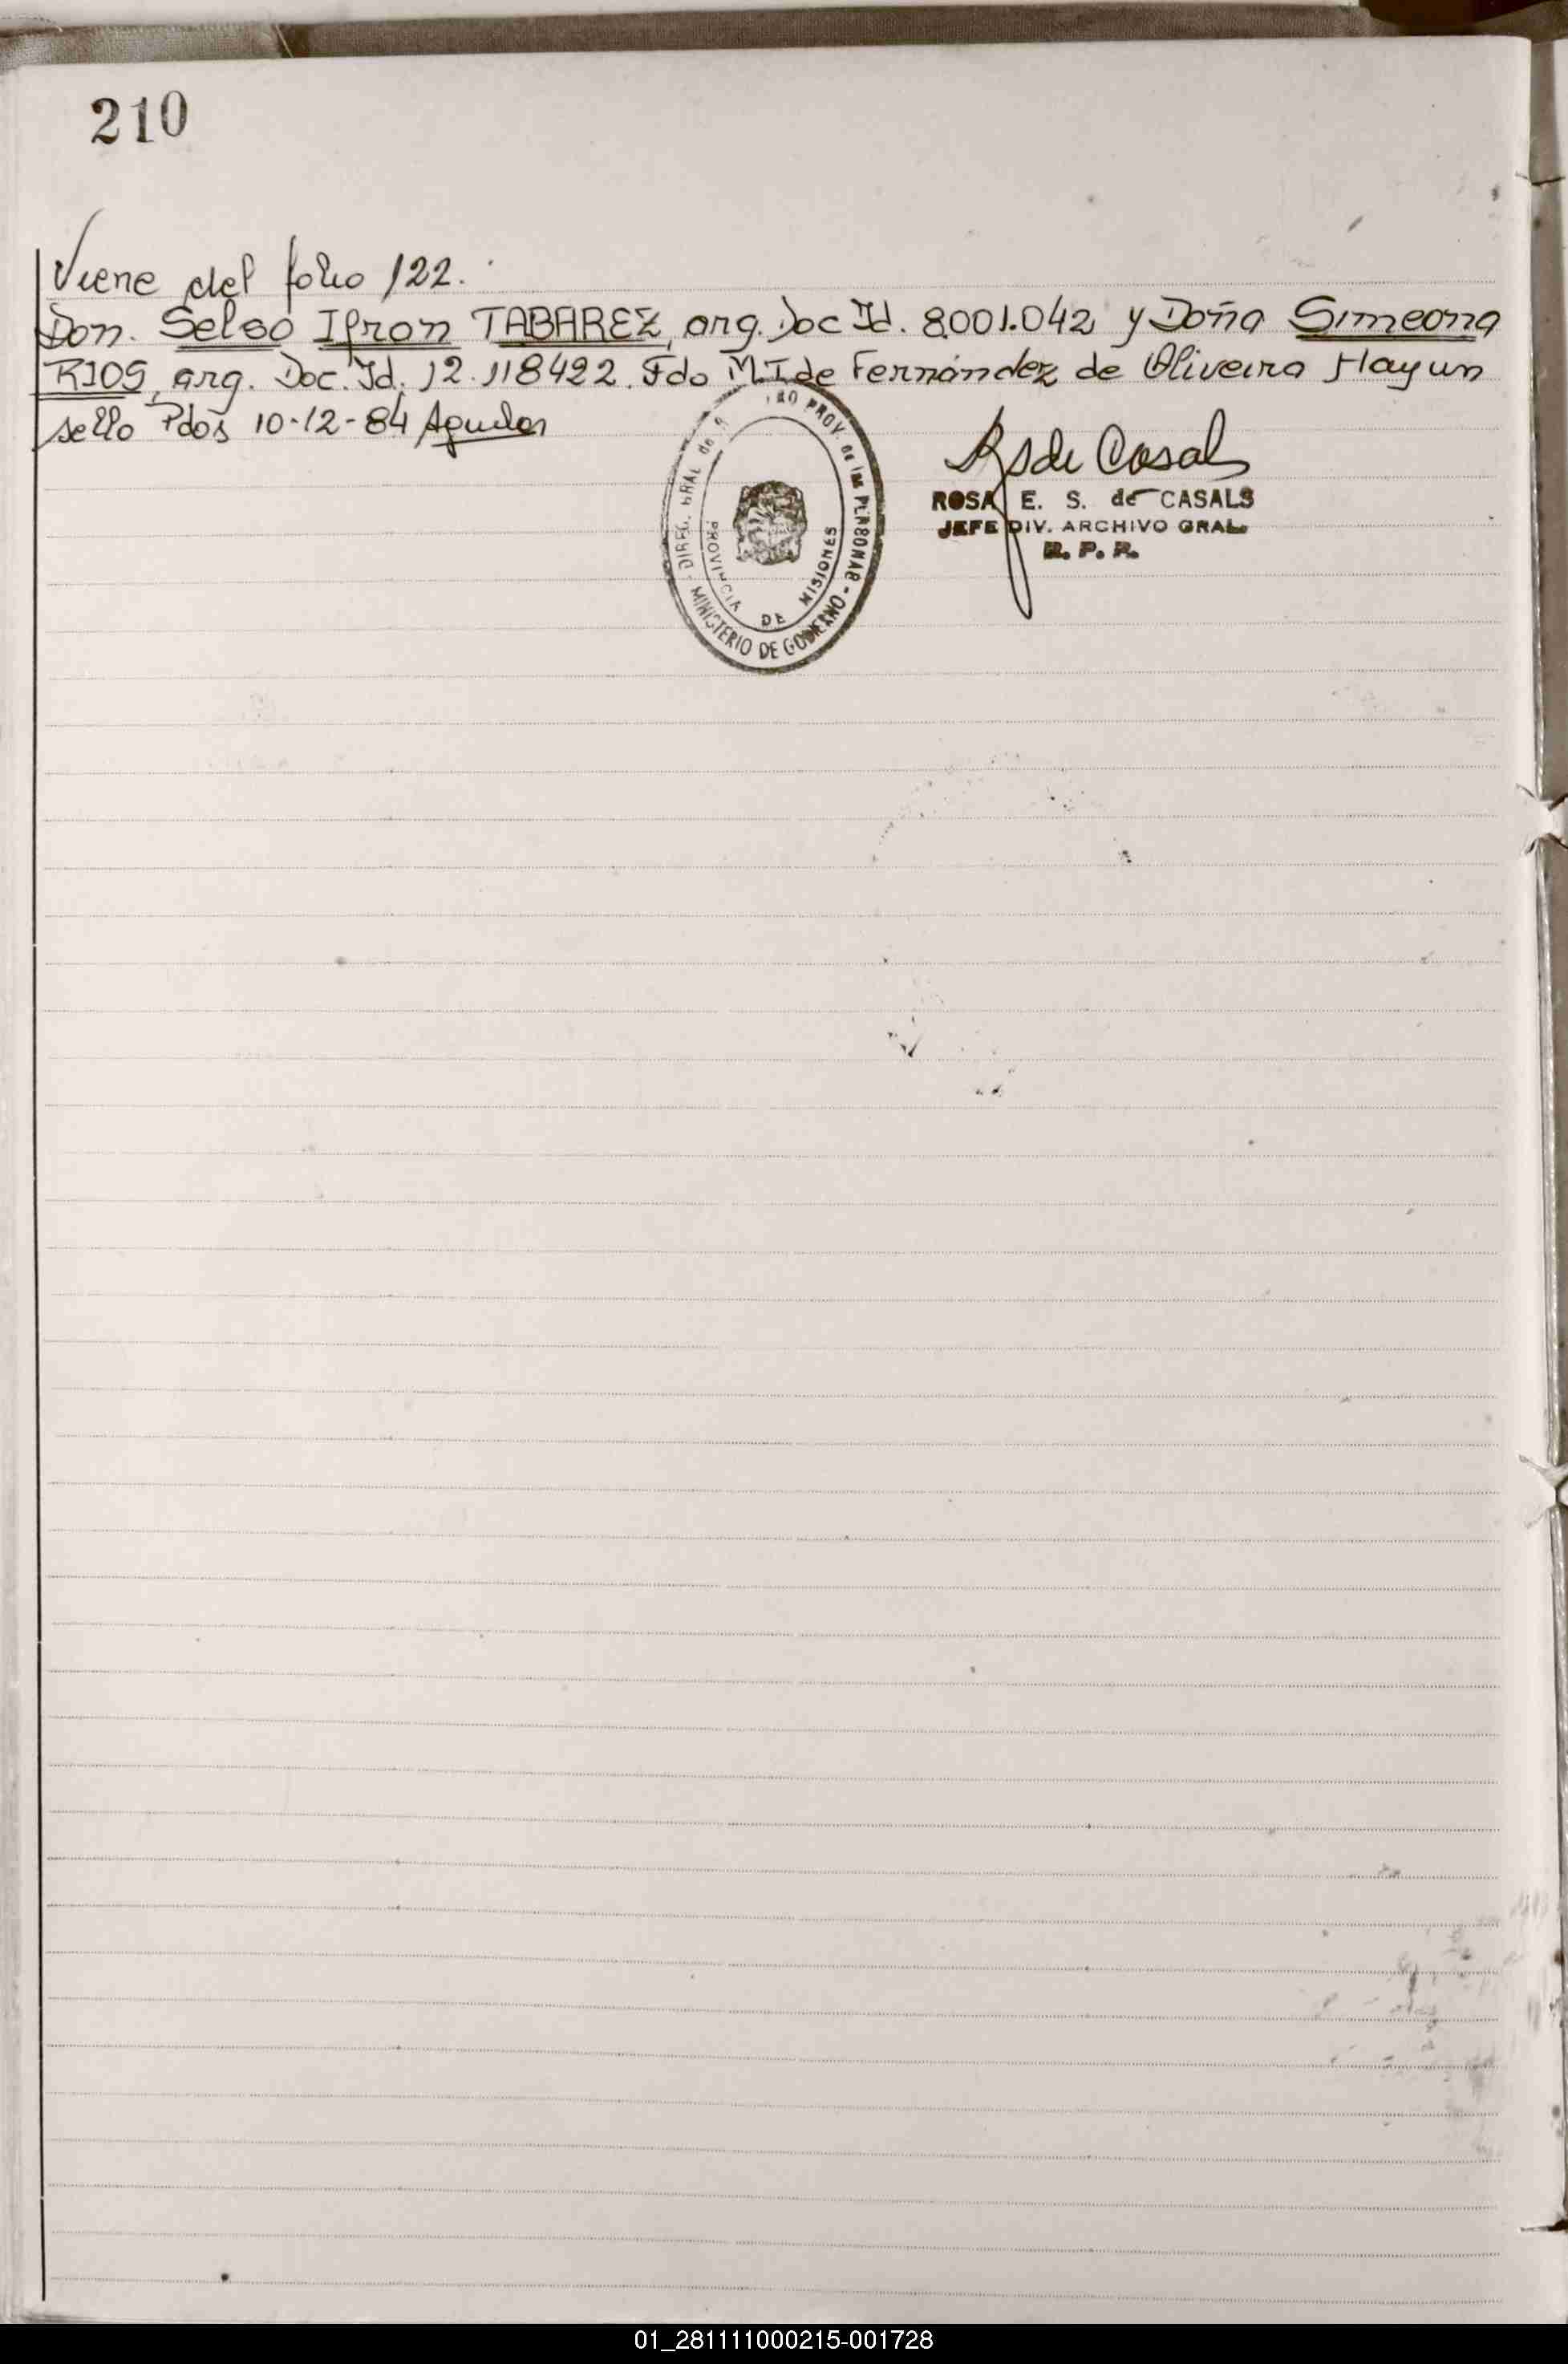 210
Viene del folio 122.
Don. Selso Ifron TABAREZ, arg. Doc Id. 8.001.042 y Doña Simeona
RIOS, arg. Doc. Id. 12.118422. Fdo M.I de Fernández de Oliveira Hay un
sello Pdos 10-12-84
R S de Casals
ROSA E. S. de CASALS
JEFE DIV. ARCHIVO GRAL.
R. P. P.
DIREC. GRAL de PROV. de las PERSONAS - MINISTERIO DE GOBIERNO -
PROVINCIA DE MISIONES
01_281111000215-001728